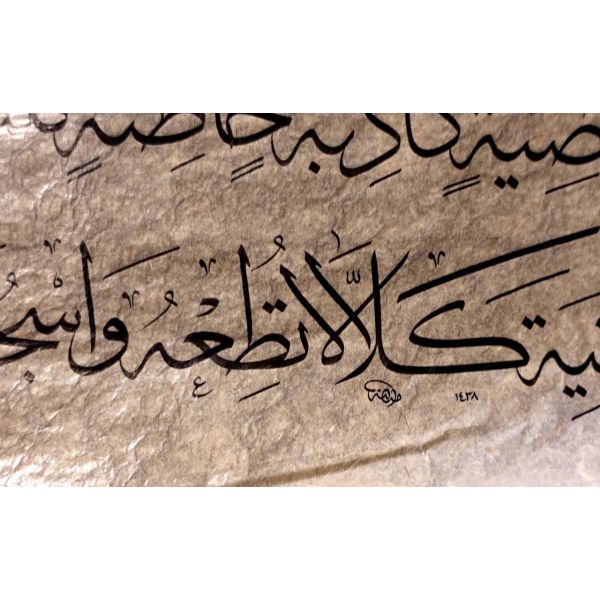 صِيَةٍ كَاذِبَةٍ خَاطِئَةٍ
نِيَةَ كَلَّا لَا تُطِعْهُ وَاسْجُ
١٤٣٨